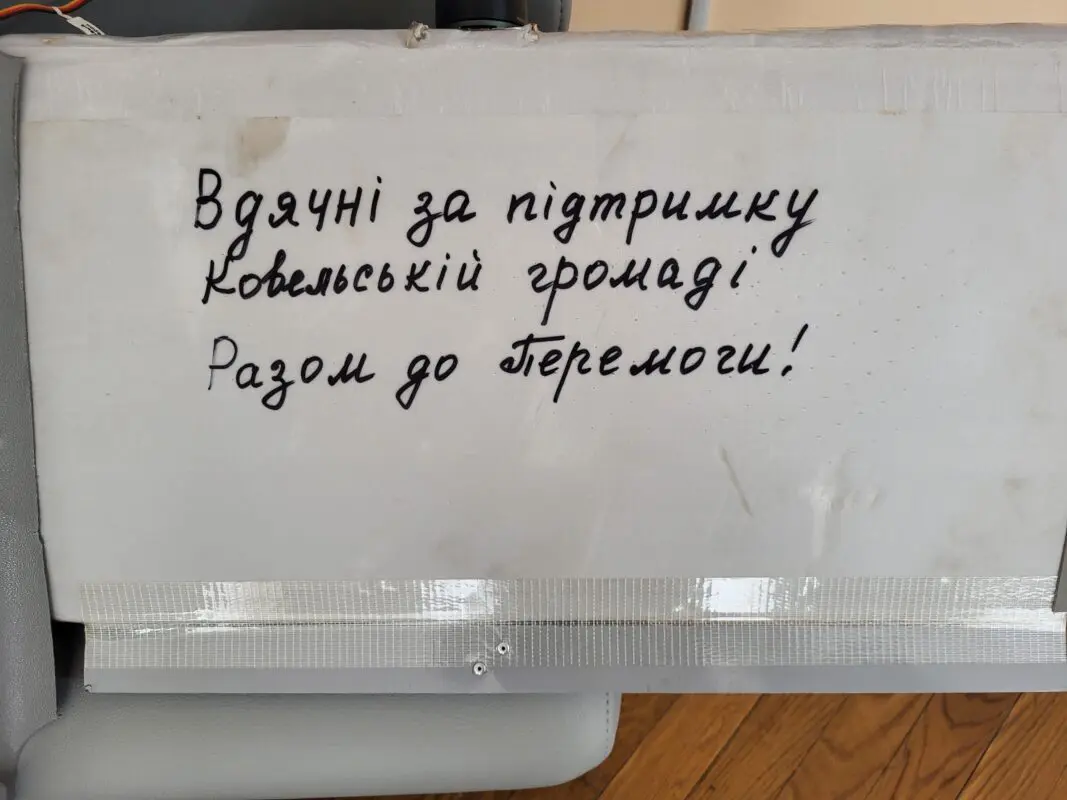 Вдячні за підтримку
Ковельській громаді
Разом до Перемоги!